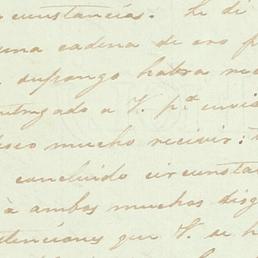 circunstancias. Le di
una cadena de oro p
durango habra rec
entregado a V. pª envia
deseo mucho recivir:
concluido circunsta
à ambos muchos disg
tenciones que V. se h